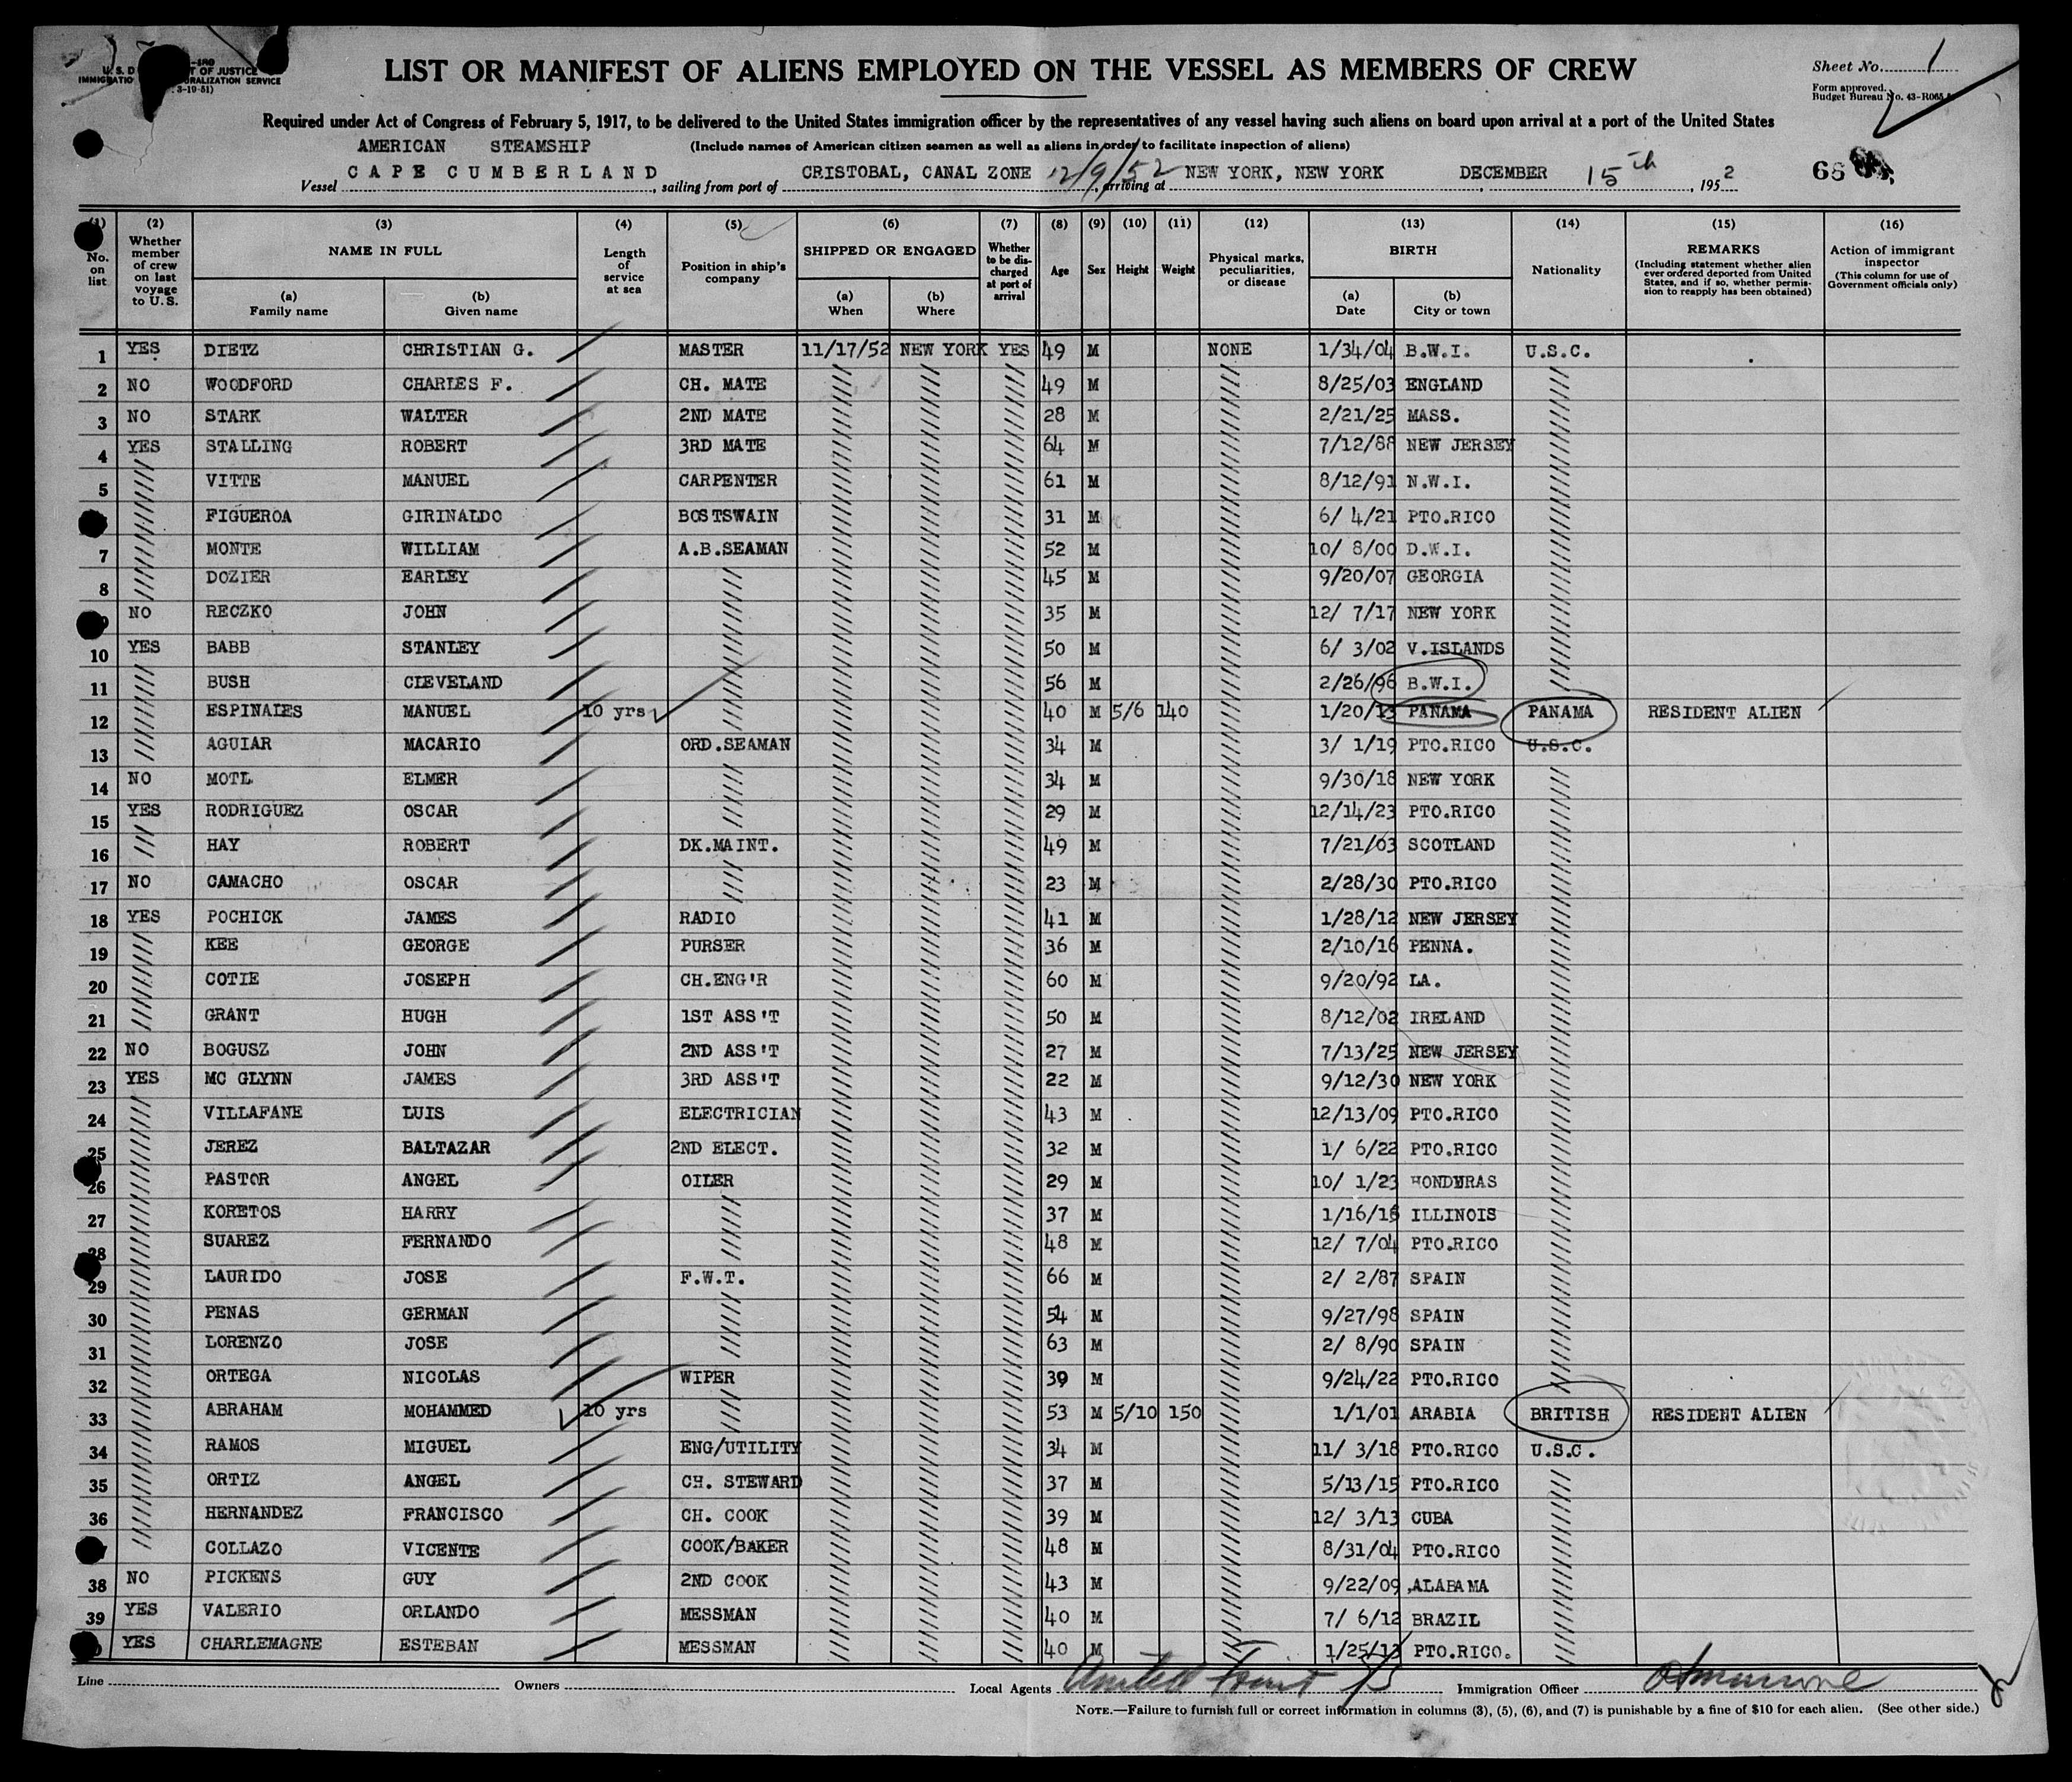 LIST OR MANIFEST OF ALIENS EMPLOYED ON THE VESSEL AS MEMBERS OF CREW
Sheet No. 1
Form approved.
Budget Bureau No. 43-R065
3-19-51)
Required under Act of Congress of February 5, 1917, to be delivered to the United States immigration officer by the representatives of any vessel having such aliens on board upon arrival at a port of the United States
AMERICAN STEAMSHIP (Include names of American citizen seamen as well as aliens in order to facilitate inspection of aliens)
Vessel CAPE CUMBERLAND, sailing from port of CRISTOBAL, CANAL ZONE 12/9/52, arriving at NEW YORK, NEW YORK DECEMBER 15th, 1952
(1) No. on list (2) Whether member of crew on last voyage to U.S. (3) NAME IN FULL (a) Family name (b) Given name (4) Length of service at sea (5) Position in ship's company (6) SHIPPED OR ENGAGED (a) When (b) Where (7) Whether to be discharged at port of arrival (8) Age (9) Sex (10) Height (11) Weight (12) Physical marks, peculiarities, or disease (13) BIRTH (a) Date (b) City or town (14) Nationality (15) REMARKS (Including statement whether alien ever ordered deported from United States, and if so, whether permission to reapply has been obtained) (16) Action of immigrant inspector (This column for use of Government officials only)
1 YES DIETZ CHRISTIAN G. MASTER 11/17/52 NEW YORK YES 49 M NONE 1/34/04 B.W.I. U.S.C.
2 NO WOODFORD CHARLES F. CH. MATE 49 M 8/25/03 ENGLAND
3 NO STARK WALTER 2ND MATE 28 M 2/21/25 MASS.
4 YES STALLING ROBERT 3RD MATE 64 M 7/12/88 NEW JERSEY
5 VITTE MANUEL CARPENTER 61 M 8/12/91 N.W.I.
FIGUEROA GIRINALDO BOSTSWAIN 31 M 6/ 4/21 PTO.RICO
7 MONTE WILLIAM A.B.SEAMAN 52 M 10/ 8/00 D.W.I.
8 DOZIER EARLEY 45 M 9/20/07 GEORGIA
NO RECZKO JOHN 35 M 12/ 7/17 NEW YORK
10 YES BABB STANLEY 50 M 6/ 3/02 V.ISLANDS
11 BUSH CLEVELAND 56 M 2/26/96 B.W.I.
12 ESPINALES MANUEL 10 yrs 40 M 5/6 140 1/20/13 PANAMA PANAMA RESIDENT ALIEN
13 AGUIAR MACARIO ORD.SEAMAN 34 M 3/ 1/19 PTO.RICO U.S.C.
14 NO MOTL ELMER 34 M 9/30/18 NEW YORK
15 YES RODRIGUEZ OSCAR 29 M 12/14/23 PTO.RICO
16 HAY ROBERT DK.MAINT. 49 M 7/21/03 SCOTLAND
17 NO CAMACHO OSCAR 23 M 2/28/30 PTO.RICO
18 YES POCHICK JAMES RADIO 41 M 1/28/12 NEW JERSEY
19 KEE GEORGE PURSER 36 M 2/10/16 PENNA.
20 COTIE JOSEPH CH.ENG'R 60 M 9/20/92 LA.
21 GRANT HUGH 1ST ASS'T 50 M 8/12/02 IRELAND
22 NO BOGUSZ JOHN 2ND ASS'T 27 M 7/13/25 NEW JERSEY
23 YES MC GLYNN JAMES 3RD ASS'T 22 M 9/12/30 NEW YORK
24 VILLAFANE LUIS ELECTRICIAN 43 M 12/13/09 PTO.RICO
25 JEREZ BALTAZAR 2ND ELECT. 32 M 1/ 6/22 PTO.RICO
26 PASTOR ANGEL OILER 29 M 10/ 1/23 HONDURAS
27 KORETOS HARRY 37 M 1/16/16 ILLINOIS
28 SUAREZ FERNANDO 48 M 12/ 7/04 PTO.RICO
29 LAURIDO JOSE F.W.T. 66 M 2/ 2/87 SPAIN
30 PENAS GERMAN 54 M 9/27/98 SPAIN
31 LORENZO JOSE 63 M 2/ 8/90 SPAIN
32 ORTEGA NICOLAS WIPER 39 M 9/24/22 PTO.RICO
33 ABRAHAM MOHAMMED 10 yrs 53 M 5/10 150 1/1/01 ARABIA BRITISH RESIDENT ALIEN
34 RAMOS MIGUEL ENG/UTILITY 34 M 11/ 3/18 PTO.RICO U.S.C.
35 ORTIZ ANGEL CH. STEWARD 37 M 5/13/15 PTO.RICO
36 HERNANDEZ FRANCISCO CH. COOK 39 M 12/ 3/13 CUBA
COLLAZO VICENTE COOK/BAKER 48 M 8/31/04 PTO.RICO
38 NO PICKENS GUY 2ND COOK 43 M 9/22/09 ALABAMA
39 YES VALERIO ORLANDO MESSMAN 40 M 7/ 6/12 BRAZIL
YES CHARLEMAGNE ESTEBAN MESSMAN 40 M 1/25/13 PTO.RICO.
Line Owners Local Agents United Fruit Immigration Officer
NOTE.—Failure to furnish full or correct information in columns (3), (5), (6), and (7) is punishable by a fine of $10 for each alien. (See other side.)